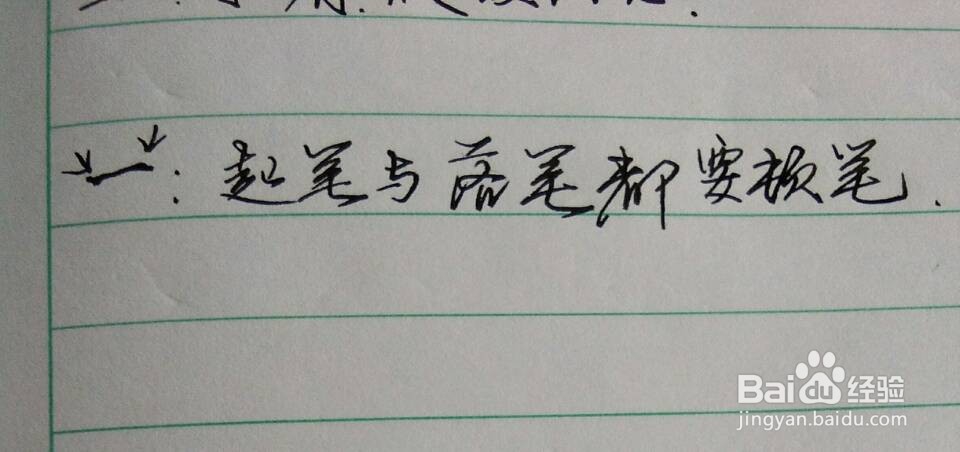 一：起笔与落笔都要顿笔.
Bai du 经验
jingyan.baidu.com